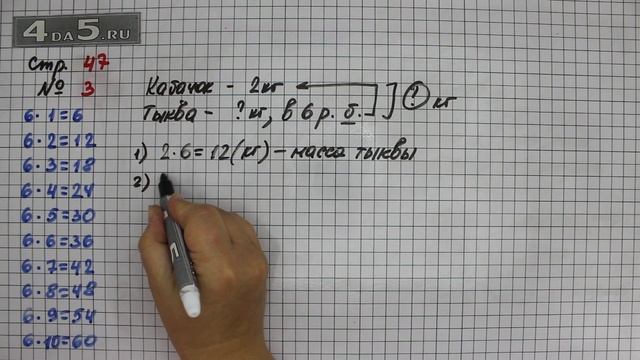 4DA5.RU
Стр. 47
№ 3
6·1=6
6·2=12
6·3=18
6·4=24
6·5=30
6·6=36
6·7=42
6·8=48
6·9=54
6·10=60
Кабачок - 2кг
Тыква - ?кг, в 6 р. б. ? кг
1) 2·6=12(кг) - масса тыквы
2)